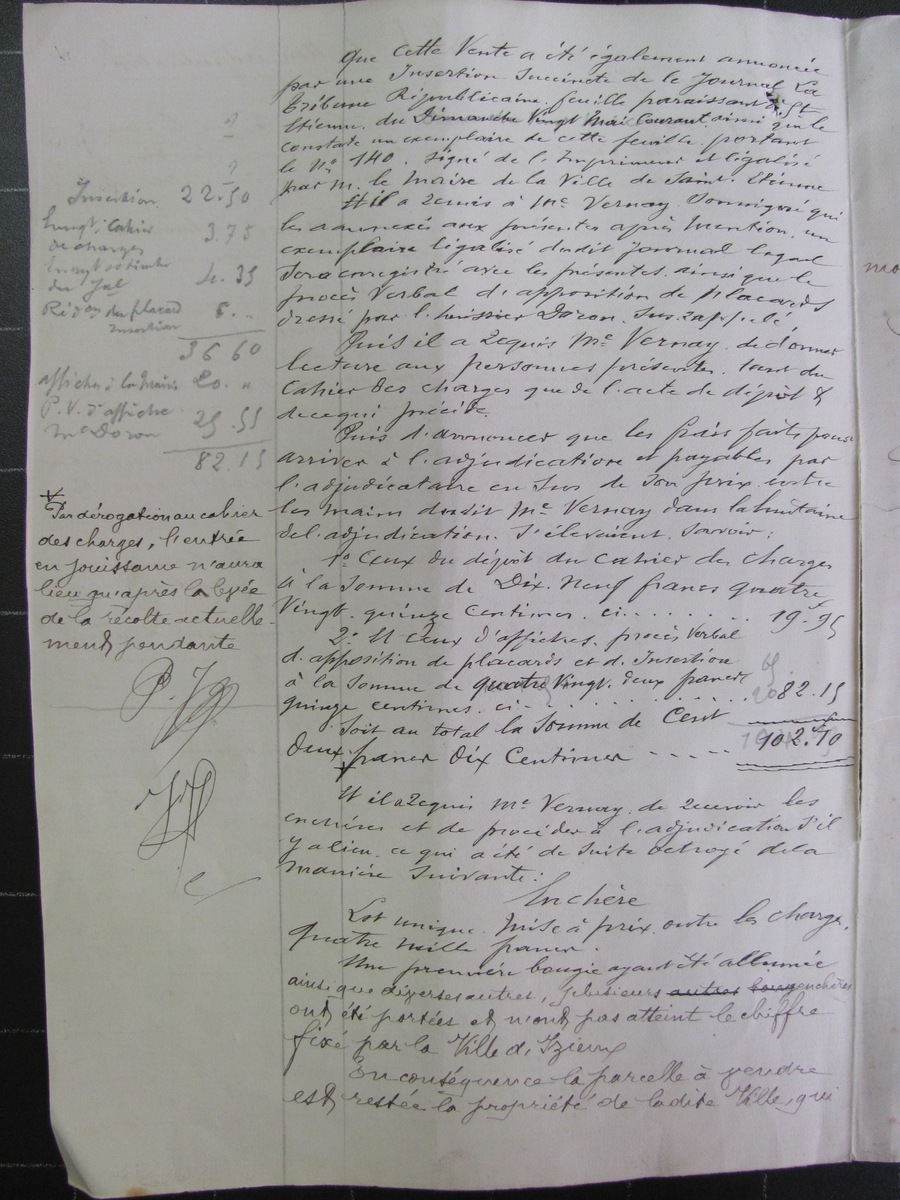 que cette Vente a été également annoncée
par une Insertion Succincte de le Journal La
Tribune Républicaine, feuille paraissant à St
Etienne, du Dimanche Vingt Mai Courant ainsi que le
constate un exemplaire de cette feuille portant
le No 140. Signé de l'Imprimeur et légalisé
par M. le Maire de la Ville de Saint. Etienne
Et il a remis à Me Vernay. Soussigné qui
les a annexés aux présentes après Mention, un
exemplaire légalisé dudit Journal lequel
Sera enregistré avec les présentes. ainsi que le
procès Verbal d'apposition de placards
dressé par l'huissier Doron. Sus rappelé.
Puis il a requis Me Vernay. de donner
lecture aux personnes présentes. tant du
Cahier des charges que de l'acte de dépôt &
de ce qui précède.
Puis d'annoncer que les frais faits pour
arriver à l'adjudication et payables par
l'adjudicataire en Sus de Son prix. entre
les mains dudit Me Vernay dans la huitaine
de l'adjudication. S'élevaient. Savoir:
1o Ceux du dépôt du Cahier des charges
à la Somme de Dix. Neuf francs quatre
Vingt. quinze centimes. ci...... 19.95
2o Et Ceux d'affiches. procès Verbal
d'apposition de placards et d'Insertion
à la Somme de quatre Vingt. deux francs
quinze centimes. ci......... 82.15
Soit au total la Somme de Cent
deux francs dix Centimes ---- 102.10
Et il a requis Me Vernay. de recevoir les
enchères et de procéder à l'adjudication S'il
y a lieu. ce qui a été de Suite octroyé de la
manière Suivante:
Enchère
Lot unique. Mise à prix. outre les charges.
quatre mille francs.
Une première bougie ayant été allumée
ainsi que diverses autres, plusieurs autres enchères
ont été portées et n'ont pas atteint le chiffre
fixé par la Ville d'Izieux
En conséquence la parcelle à vendre
est restée la propriété de ladite Ville, qui
Insertion 22.50
Enregt. Cahier
de charges 3.75
4.35
Réd.on du placard
insertion 6. "
36 60
affiches à la main 20. "
P.V. d'affiche
Me Doron 25.55
82.15
Par dérogation au cahier
des charges, l'entrée
en jouissance n'aura
lieu qu'après la levée
de la récolte actuelle-
ment pendante